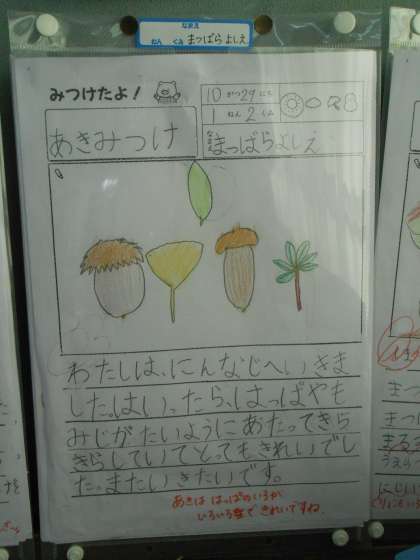 なまえ
ねん くみ まつばらよしえ
みつけたよ！
10 がつ 29 にち
1 ねん 2 くみ
あきみつけ
なまえ まつばらよしえ
わたしは、にんなじへいきま
した。はいったら、はっぱやも
みじがたいようにあたってきら
きらしていてとってもきれいでし
た。またいきたいです。
あきは はっぱのいろが
いろいろで きれいですね。